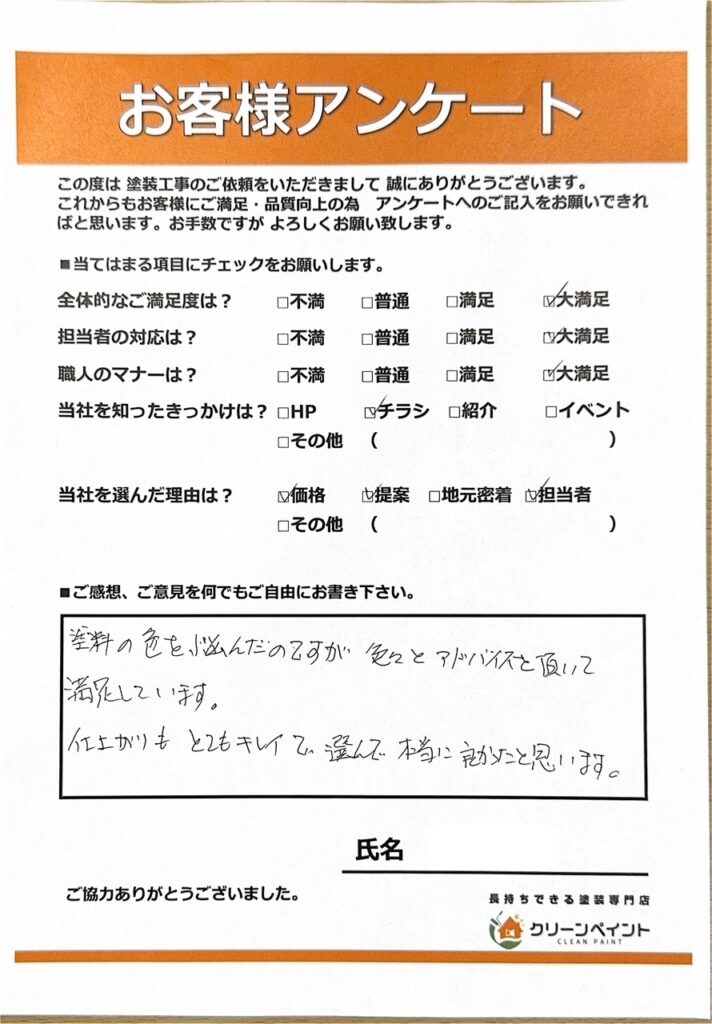 お客様アンケート
この度は 塗装工事のご依頼をいただきまして 誠にありがとうございます。
これからもお客様にご満足・品質向上の為　アンケートへのご記入をお願いできれ
ばと思います。お手数ですが よろしくお願い致します。
■当てはまる項目にチェックをお願いします。
全体的なご満足度は？ □不満 □普通 □満足 ☑大満足
担当者の対応は？ □不満 □普通 □満足 ☑大満足
職人のマナーは？ □不満 □普通 □満足 ☑大満足
当社を知ったきっかけは？ □HP ☑チラシ □紹介 □イベント
□その他 （ ）
当社を選んだ理由は？ ☑価格 ☑提案 □地元密着 ☑担当者
□その他 （ ）
■ご感想、ご意見を何でもご自由にお書き下さい。
塗料の色を悩んだのですが 色々とアドバイスを頂いて
満足しています。
仕上がりも とてもキレイで 選んで 本当に 良かったと思います。
氏名
ご協力ありがとうございました。
長持ちできる塗装専門店
クリーンペイント
CLEAN PAINT